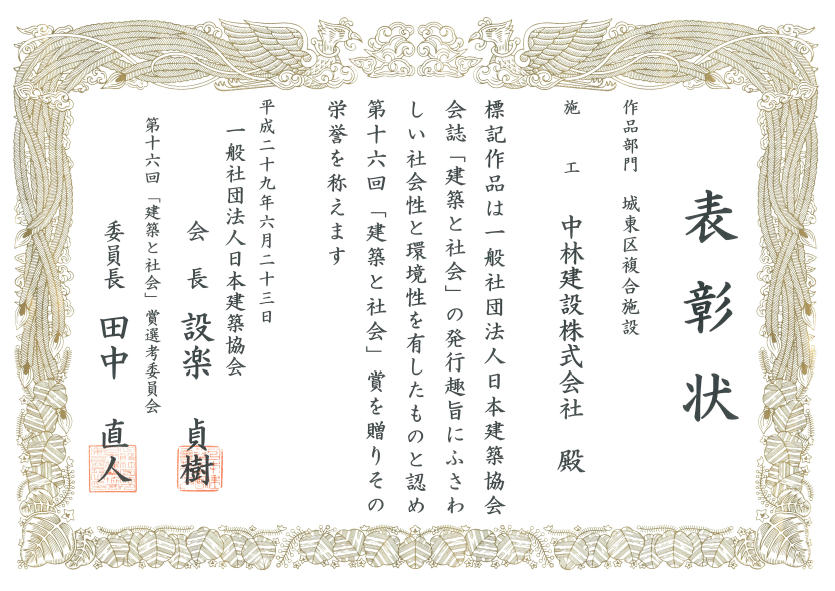 表彰状
作品部門　城東区複合施設
施　工　中林建設株式会社　殿
標記作品は一般社団法人日本建築協会
会誌「建築と社会」の発行趣旨にふさわ
しい社会性と環境性を有したものと認め
第十六回「建築と社会」賞を贈りその
栄誉を称えます
平成二十九年六月二十三日
一般社団法人日本建築協会
会　長　設楽　貞樹
第十六回「建築と社会」賞選考委員会
委員長　田中　直人